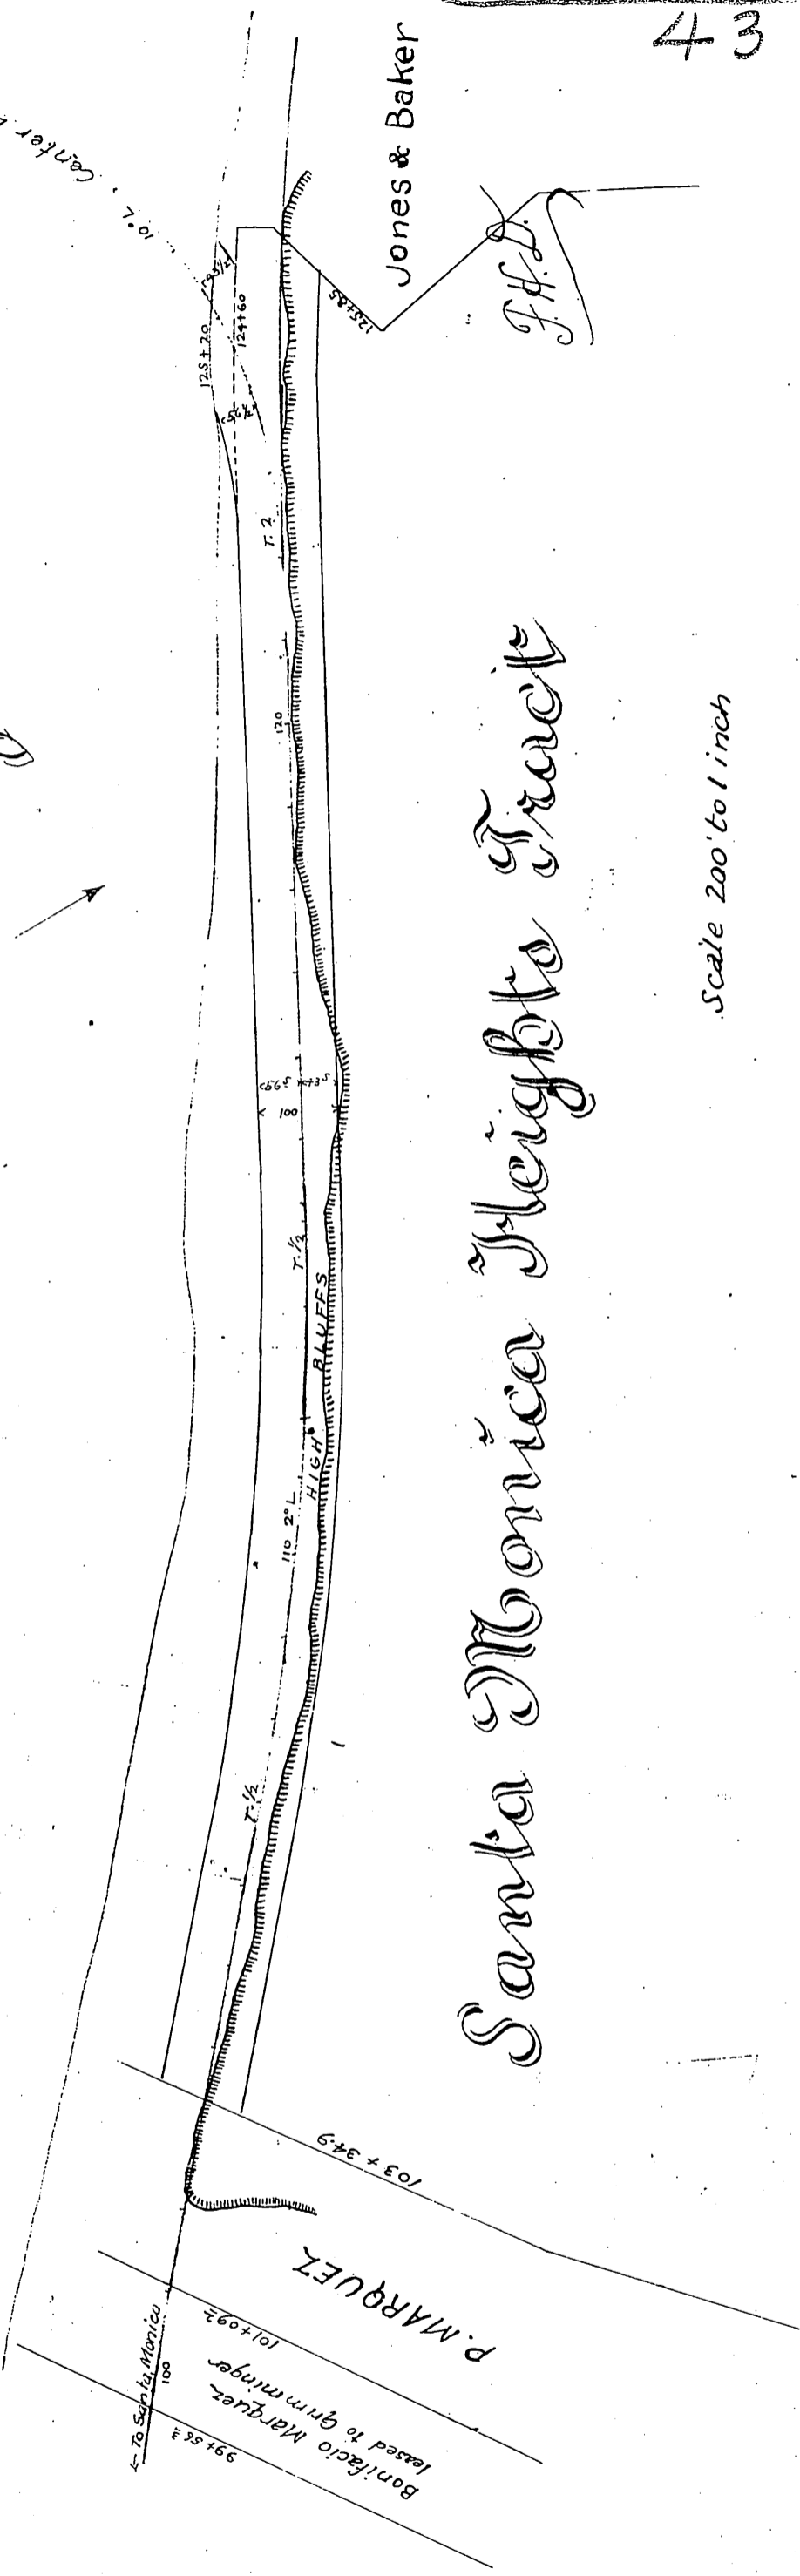 43
Center
10°L
Jones & Baker
F.H.D.
125+20
124+60
125+85
T. 2
120
Santa Monica Heights Tract
Scale 200' to 1 inch
100
T. 1/2
HIGH BLUFFS
110 2°L
T. 1/2
103 + 34.9
P. MARQUEZ
101+09
Bonifacio Marquez
leased to Grimminger
99+56
← To Santa Monica
100